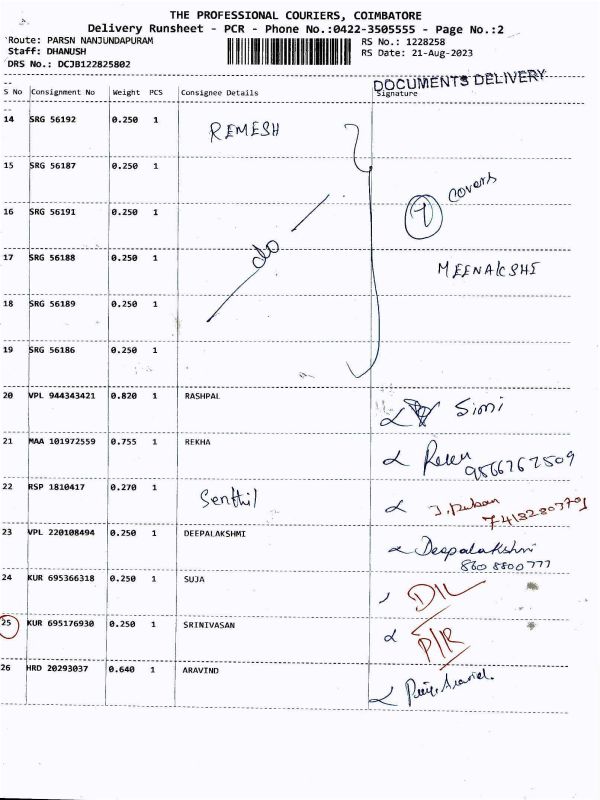 THE PROFESSIONAL COURIERS, COIMBATORE
Delivery Runsheet - PCR - Phone No.:0422-3505555 - Page No.:2
Route: PARSN NANJUNDAPURAM
RS No.: 1228258
Staff: DHANUSH
RS Date: 21-Aug-2023
DRS No.: DCJB122825802
DOCUMENTS DELIVERY
S No Consignment No Weight PCS Consignee Details Signature
14 SRG 56192 0.250 1 REMESH
15 SRG 56187 0.250 1
covers
16 SRG 56191 0.250 1
do
17 SRG 56188 0.250 1 MEENAKSHI
18 SRG 56189 0.250 1
19 SRG 56186 0.250 1
20 VPL 944343421 0.820 1 RASHPAL Simi
21 MAA 101972559 0.755 1 REKHA
9566767509
22 RSP 1810417 0.270 1 Senthil
23 VPL 220108494 0.250 1 DEEPALAKSHMI Deepalakshmi
860 8800777
24 KUR 695366318 0.250 1 SUJA D/L
25 KUR 695176930 0.250 1 SRINIVASAN P/R
26 HRD 20293037 0.640 1 ARAVIND